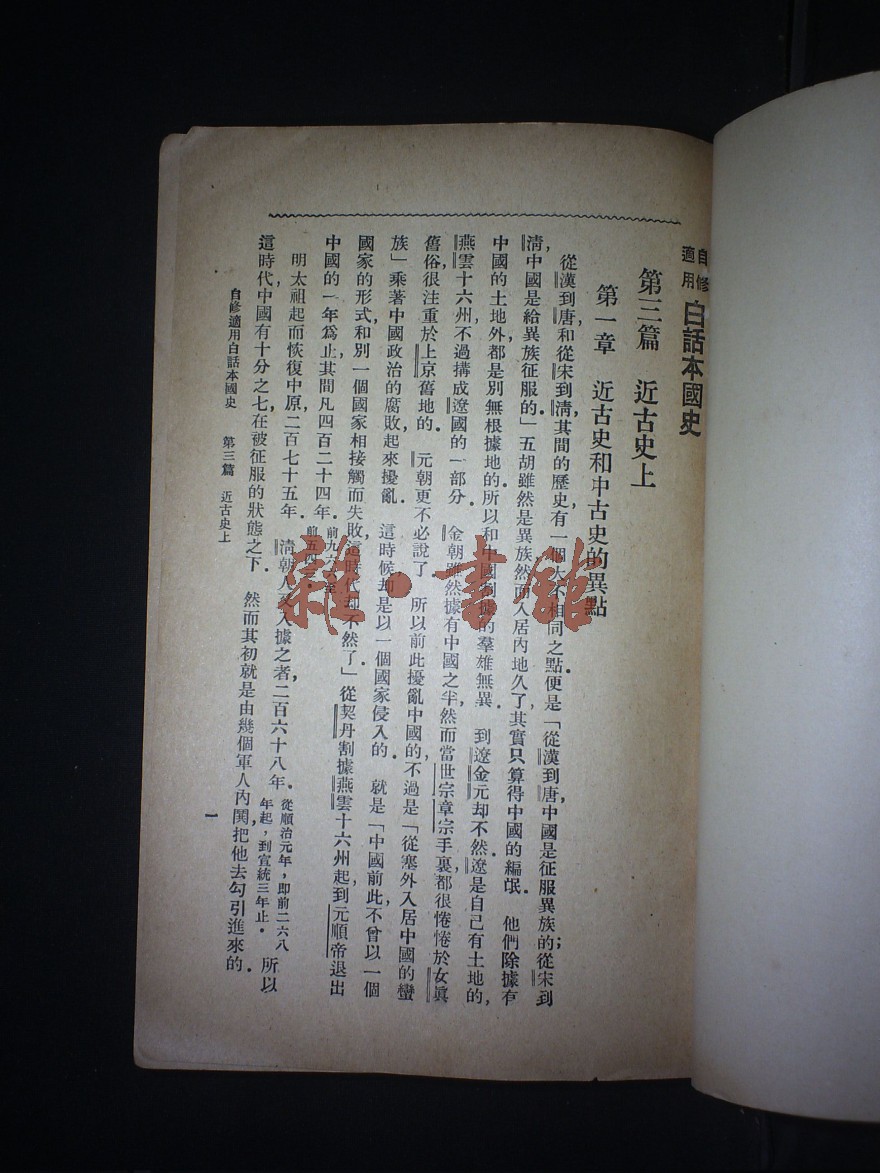 自修適用白話本國史
第三篇　近古史上
第一章　近古史和中古史的異點
從漢到唐，和從宋到清，其間的歷史，有一個大不相同之點，便是「從漢到唐，中國是征服異族的；從宋到
清，中國是給異族征服的。」五胡雖然是異族，然而入居內地久了，其實只算得中國的編氓。他們除據有
中國的土地外，都是別無根據地的。所以和中國割據的羣雄無異。到遼金元却不然。遼是自己有土地的，
燕雲十六州，不過搆成遼國的一部分。金朝雖然據有中國之半，然而當世宗章宗手裏，都很惓惓於女眞
舊俗，很注重於上京舊地的。元朝更不必說了。所以前此擾亂中國的，不過是「從塞外入居中國的蠻
族」乘著中國政治的腐敗，起來擾亂。這時候却是以一個國家侵入的。就是「中國前此不曾以一個
國家的形式，和別一個國家相接觸而失敗，這時代却不然了。」從契丹割據燕雲十六州起，到元順帝退出
中國的一年爲止，其間凡四百二十四年。前九六六至前五四。
明太祖起而恢復中原，二百七十五年。清朝人又入據之者，二百六十八年。從順治元年，即前二六八年起，到宣統三年止。所以
這時代，中國有十分之七，在被征服的狀態之下。然而其初就是由幾個軍人內鬨，把他去勾引進來的。
自修適用白話本國史　第三篇　近古史上
一
雜·書館